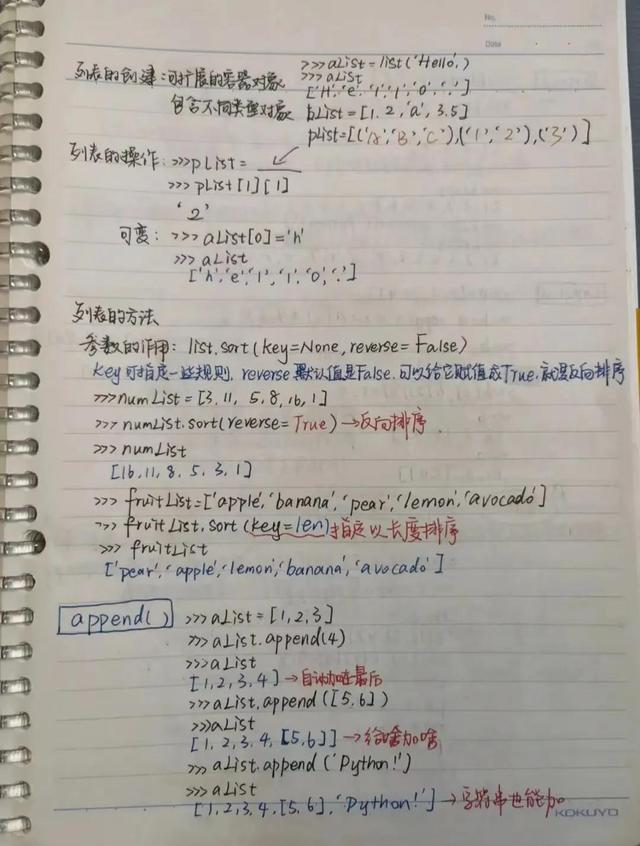 No.
Date
>>>aList=list('Hello.')
列表的创建:可扩展的容器对象 >>>aList
['H','e','l','l','o','.']
包含不同类型对象 bList=[1.2,'a',3.5]
pList=[('A','B','C'),('1','2'),('3')]
列表的操作:>>>pList=
>>>pList[1][1]
'2'
可变:>>>aList[0]='h'
>>>aList
['h','e','l','l','o','.']
列表的方法
参数的作用:list.sort(key=None,reverse=False)
key可指定一些规则.reverse默认值是False.可以给它赋值成True.就是反向排序
>>>numList=[3,11,5,8,16,1]
>>>numList.sort(reverse=True)→反向排序.
>>>numList
[16,11,8,5,3,1]
>>>fruitList=['apple','banana','pear','lemon','avocado']
>>>fruitList.sort(key=len)指定以长度排序
>>>fruitList
['pear','apple','lemon','banana','avocado']
append() >>>aList=[1,2,3]
>>>aList.append(4)
>>>aList
[1,2,3,4]→自动加在最后
>>>aList.append([5,6])
>>>aList
[1,2,3,4,[5,6]]→给啥加啥
>>>aList.append('Python!')
>>>aList
[1,2,3,4,[5,6],'Python!']→字符串也能加
KOKUYO